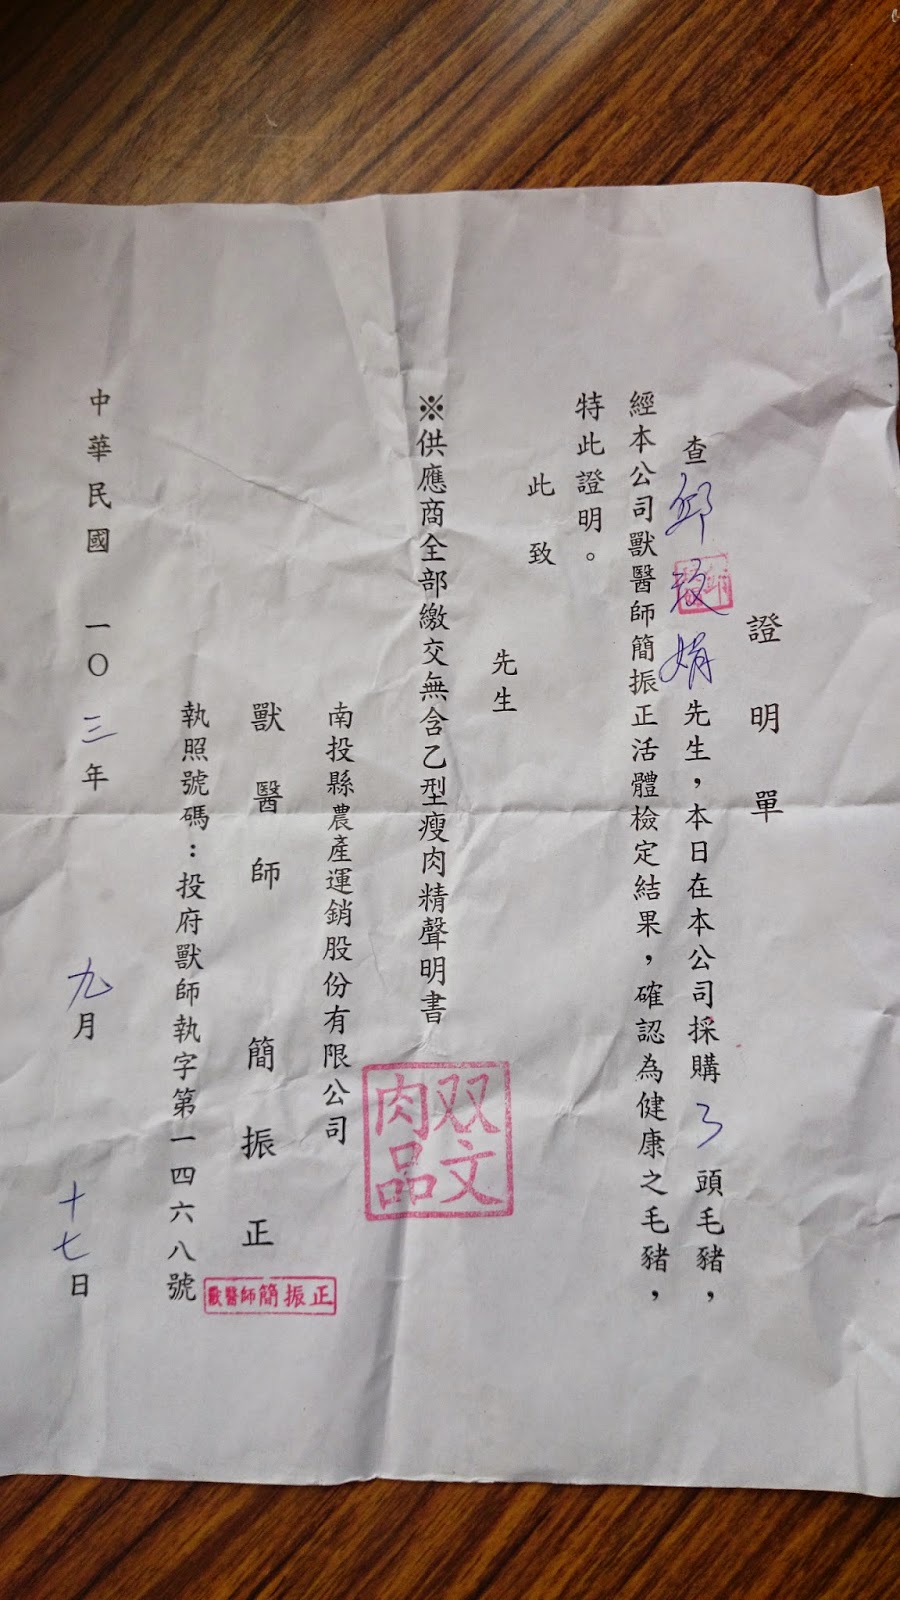 證明單
查邱 娟先生，本日在本公司採購 頭毛豬，
經本公司獸醫師簡振正活體檢定結果，確認為健康之毛豬，
特此證明。
此致
先生
※供應商全部繳交無含乙型瘦肉精聲明書
双文
肉品
南投縣農產運銷股份有限公司
獸醫師 簡振正
獸醫師簡振正
執照號碼：投府獸師執字第一四六八號
中華民國 一〇三年 九月 十七日